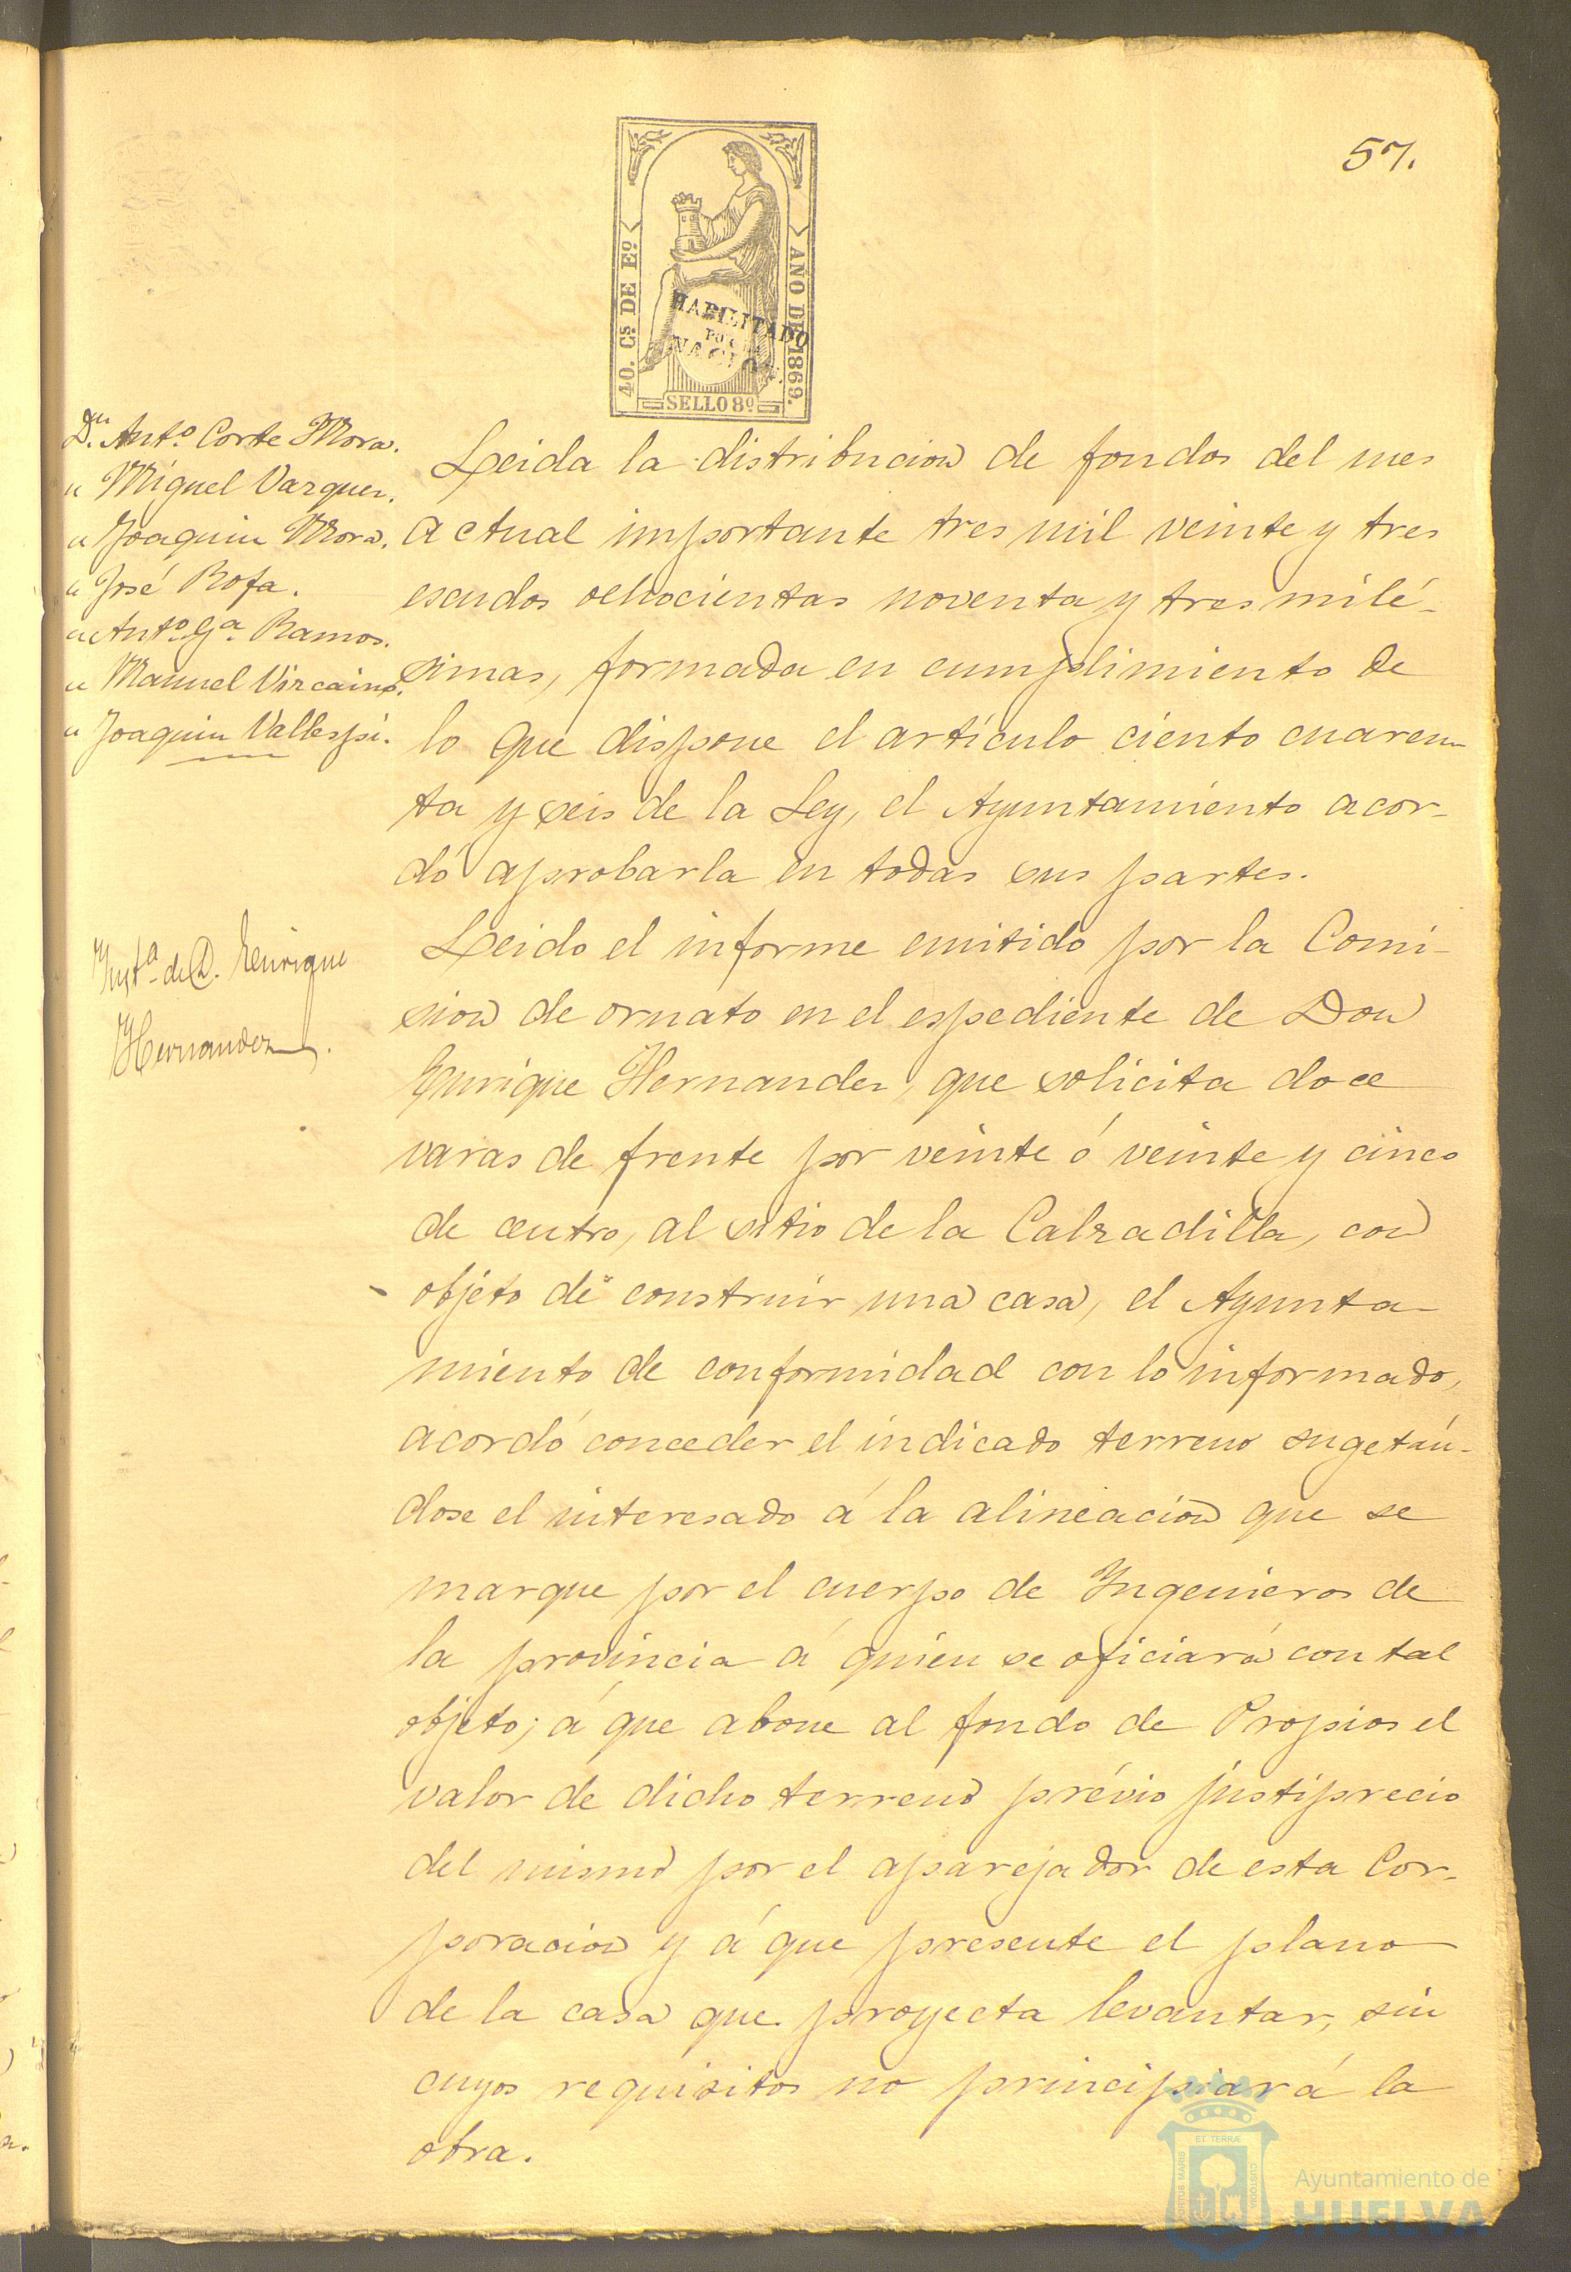 57.
40. Cs. DE Eº.
AÑO DE 1869.
SELLO 8º
HABILITADO
POR LA
NACION.
Dn. Antº. Corte Mora.
" Miguel Vazquez.
" Joaquin Mora.
" José Rofa.
" Antº. Gª. Ramos.
" Manuel Vizcaino.
" Joaquin Vallespi.
Leida la distribucion de fondos del mes
actual importante tres mil veinte y tres
escudos ochocientas noventa y tres milé-
simas, formada en cumplimiento de
lo que dispone el artículo ciento cuaren-
ta y seis de la Ley, el Ayuntamiento acor-
dó aprobarla en todas sus partes.
Instª. de D. Henrique
Hernandez.
Leido el informe emitido por la Comi-
sion de ornato en el espediente de Don
Enrique Hernandez, que solicita doce
varas de frente por veinte ó veinte y cinco
de centro, al sitio de la Calzadilla, con
objeto de construir una casa, el Ayunta-
miento de conformidad con lo informado,
acordó conceder el indicado terreno sugetán-
dose el interesado á la alineacion que se
marque por el cuerpo de Yngenieros de
la provincia á quien se oficiará con tal
objeto; á que abone al fondo de Propios el
valor de dicho terreno prévio justiprecio
del mismo por el aparejador de esta Cor-
poracion y á que presente el plano
de la casa que proyecta levantar, sin
cuyos requisitos no principiará la
obra.
PORTUS MARIS
ET TERRÆ
CUSTODIA
Ayuntamiento de
HUELVA